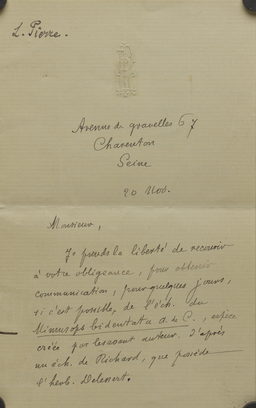 L. Pierre.
Avenue de gravelles 67
Charenton
Seine
20 Nov.
Monsieur,
Je prends la liberté de recourir
à votre obligeance, pour obtenir
communication, pour quelques jours,
si c'est possible, de l'éch. du
Mimusops bidentata a. de C., espèce
créée par le savant auteur. D'après
un éch. de Richard, que possède
l'herb. Delessert.